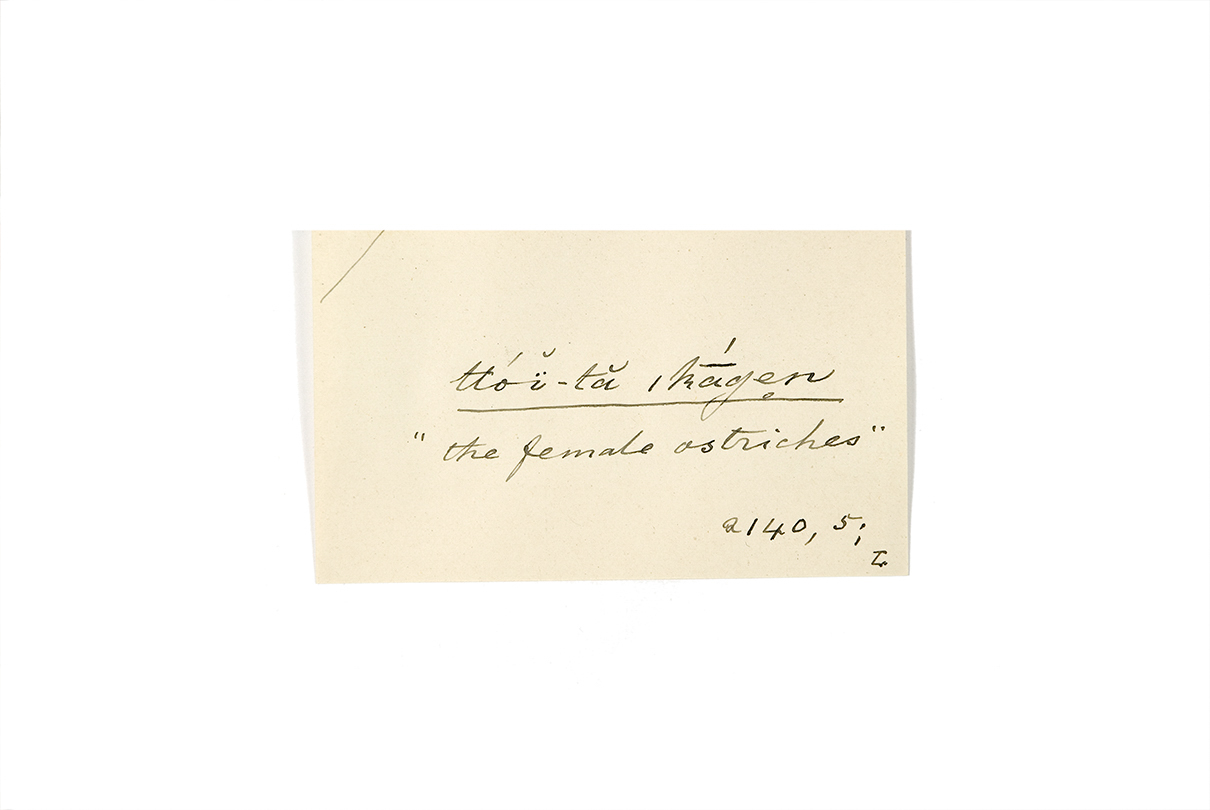 ttóĭ̤-tă ǀkā́gen̥
"the female ostriches"
2140, 5;
L